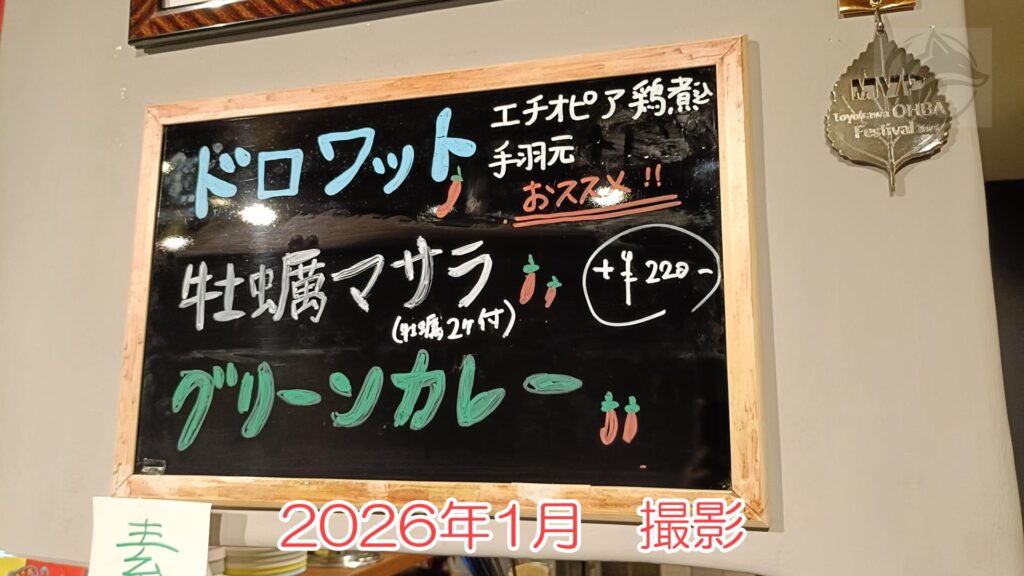 ドロワット
エチオピア鶏煮込
手羽元
おススメ!!
牡蠣マサラ
(牡蠣2ケ付)
+¥220-
グリーンカレー
MVP
Toyokawa OHBA
Festival
2026年1月 撮影